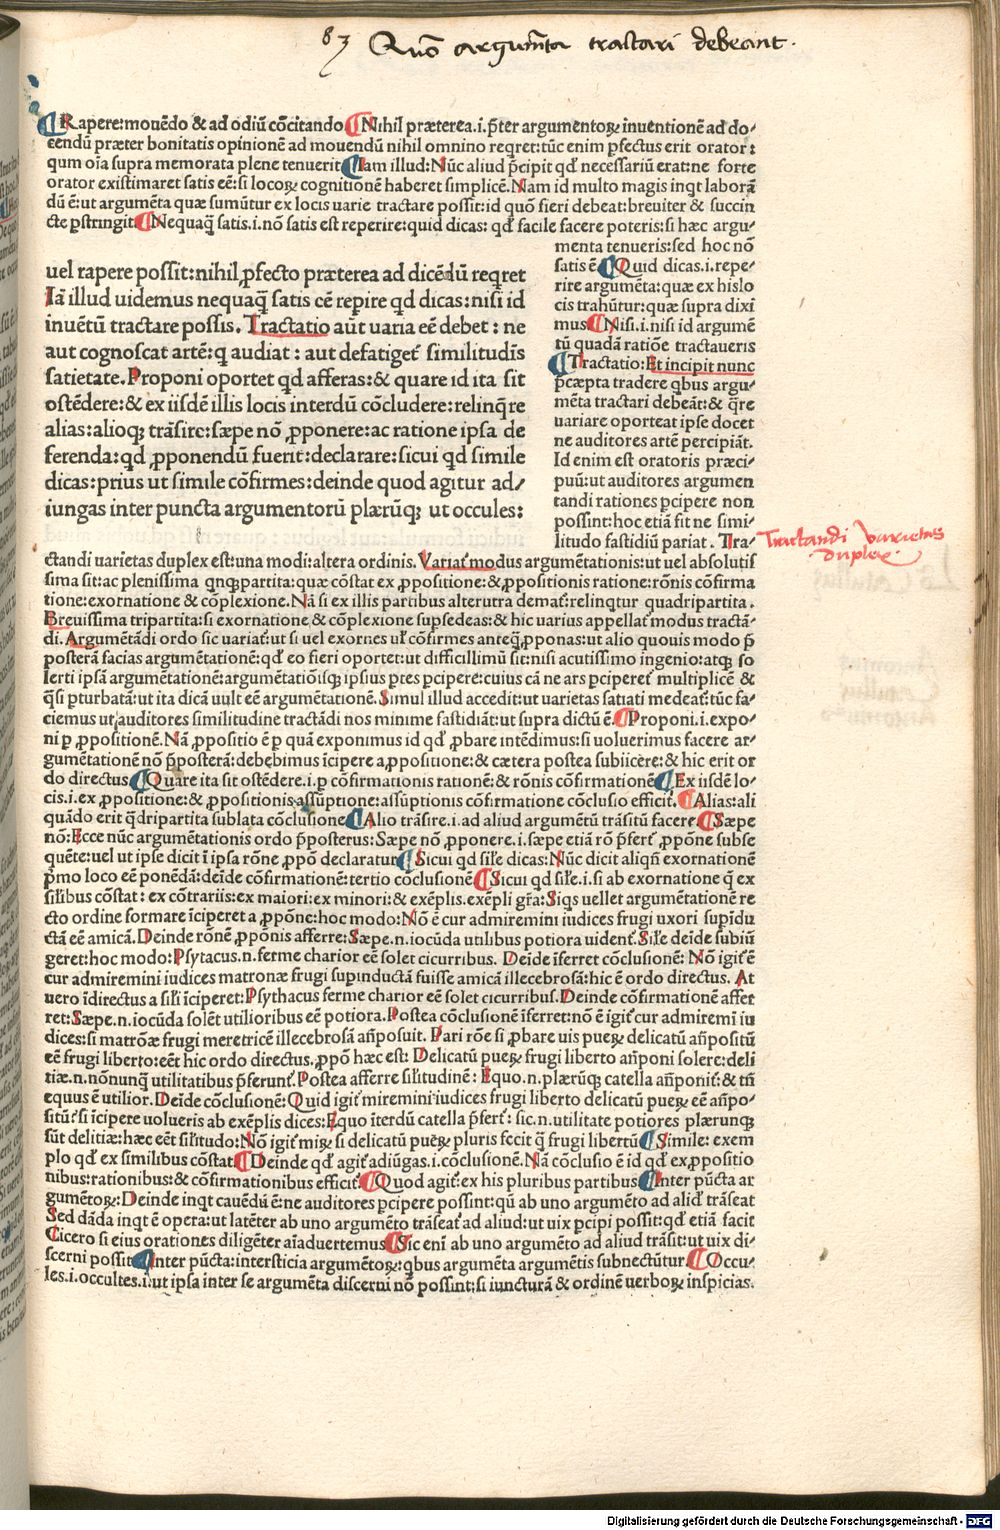 83 Quō argumēta tractari debeant.
Rapere:mouēdo & ad odiū cōcitando Nihil præterea.i.p̄ter argumentoꝝ inuentionē ad do⸗
cendū præter bonitatis opinionē ad mouendū nihil omnino reqret:tūc enim pfectus erit orator:
qum oīa supra memorata plene tenuerit Iam illud:Nūc aliud p̄cipit qđ necessariū erat:ne forte
orator existimaret satis eē:si locoꝝ cognitionē haberet simplicē.Nam id multo magis inqt laborā
dū ē:ut argumēta quæ sumūtur ex locis uarie tractare possit:id quō fieri debeat:breuiter & succin
cte pstringit Nequaq̄ satis.i.nō satis est reperire:quid dicas: qđ facile facere poteris:si hæc argu⸗
menta tenueris:sed hoc nō
satis ē Quid dicas.i.repe⸗
rire argumēta:quæ ex his lo
cis trahūtur:quæ supra dixi
mus Nisi.i.nisi id argumē
tū quadā ratiōe tractaueris
Tractatio:Et incipit nunc
p̄cæpta tradere qbus argu⸗
mēta tractari debeāt:& q̄re
uariare oporteat ipse docet
ne auditores artē percipiāt.
Id enim est oratoris præci⸗
puū:ut auditores argumen
tandi rationes pcipere non
possint:hoc etiā fit ne simi⸗
litudo fastidiū pariat. Tra⸗
uel rapere possit:nihil ꝓfecto præterea ad dicēdū reqret
Iā illud uidemus nequaq̄ satis eē repire qđ dicas:nisi id
inuētū tractare possis. Tractatio aūt uaria eē debet: ne
aut cognoscat artē:q audiat: aut defatiget́ similitudīs
satietate.Proponi oportet qđ afferas:& quare id ita sit
ostēdere:& ex iisdē illis locis interdū cōcludere:relinq̄re
alias:alioqꝫ trāsire:sæpe nō ꝓponere:ac ratione ipsa de
ferenda:qđ ꝓponendū fuerit:declarare:sicui qđ simile
dicas:prius ut simile cōfirmes:deinde quod agitur ad⸗
iungas inter puncta argumentorū plærūqꝫ ut occules:
Tractandi varietas
duplex.
ctandi uarietas duplex est:una modi:altera ordinis. Variat́ modus argumētationis:ut uel absolutis
sima sit:ac plenissima qnqꝫpartita:quæ cōstat ex ꝓpositione:& ꝓpositionis ratione:rōnis cōfirma
tione:exornatione & cōplexione. Nā si ex illis partibus alterutra demat́:relinqtur quadripartita.
Breuissima tripartita:si exornatione & cōplexione supsedeas:& hic uarius appellat́ modus tractā⸗
di. Argumētādi ordo sic uariat́:ut si uel exornes uł cōfirmes anteq̄ ꝓponas:ut alio quouis modo p̄
posterā facias argumētationē:qđ eo fieri oportet:ut difficillimū sit:nisi acutissimo ingenio:atqꝫ so
lerti ipsā argumētationē:argumētatiōisqꝫ ipsius ptes pcipere:cuius cā ne ars pciperet́ multiplicē &
q̄si pturbatā:ut ita dicā uult eē argumētationē. Simul illud accedit:ut uarietas satiati medeat́:tūc fa⸗
ciemus ut auditores similitudine tractādi nos minime fastidiāt:ut supra dictū ē. Proponi.i.expo⸗
ni p ꝓpositionē. Nā ꝓpositio ē p quā exponimus id qđ ꝓbare intēdimus:si uoluerimus facere ar⸗
gumētationē nō p̄posterā:debebimus īcipere a ꝓpositione:& cætera postea subiicere:& hic erit or
do directus Quare ita sit ostēdere.i.p cōfirmationis rationē:& rōnis cōfirmationē Ex iisdē lo⸗
cis.i.ex ꝓpositione:& ꝓpositionis assūptione:assūptionis cōfirmatione cōclusio efficit́. Alias:ali
quādo erit q̄dripartita sublata cōclusione Alio trāsire.i.ad aliud argumētū trāsitū facere Sæpe
nō:Ecce nūc argumētationis ordo p̄posterus:Sæpe nō ꝓponere.i.sæpe etiā rō p̄fert́ ꝓpōne subse
quēte:uel ut ipse dicit ī ipsa rōne ꝓpō declaratur Sicui qđ siłe dicas:Nūc dicit aliqñ exornationē
p̄mo loco eē ponēdā:deīde cōfirmationē:tertio cōclusionē Sicui qđ siłe.i.si ab exornatione q̄ ex
siłibus cōstat: ex cōtrariis:ex maiori:ex minori:& exēplis.exēpli gr̄a:Siqs uellet argumētationē re
cto ordine formare īciperet a ꝓpōne:hoc modo:Nō ē cur admiremini iudices frugi uxori supīdu
ctā eē amicā. Deinde rōnē ꝓpōnis afferre:Sæpe.n.iocūda utilibus potiora uident́. Siłe deīde subiū
geret:hoc modo:Psytacus.n.ferme charior eē solet cicurribus. Deīde īferret cōclusionē: Nō igit́ ē
cur admiremini iudices matronæ frugi supinductā fuisse amicā illecebrosā:hic ē ordo directus. At
uero īdirectus a siłi īciperet:Psythacus ferme charior eē solet cicurribus.Deinde cōfirmationē affer
ret:Sæpe.n.iocūda solēt utilioribus eē potiora.Postea cōclusionē īferret:nō ē igit́ cur admiremī iu
dices:si matrōæ frugi meretricē illecebrosā añposuit. Pari rōe si ꝓbare uis pueꝝ delicatū añpositū
eē frugi liberto:eēt hic ordo directus.ꝓpō hæc est: Delicatū pueꝝ frugi liberto añponi solere:deli
tiæ.n.nōnunq̄ utilitatibus p̄ferunt́.Postea afferre siłitudinē: Equo.n.plærūqꝫ catella añponit́:& tñ
equus ē utilior.Deīde cōclusionē:Quid igit́ miremini iudices frugi liberto delicatū pueꝝ eē añpo⸗
sitū:si īcipere uolueris ab exēplis dices:Equo īterdū catella p̄fert́: sic.n.utilitate potiores plærunqꝫ
sūt delitiæ:hæc eēt siłitudo:Nō igit́ miꝝ si delicatū pueꝝ pluris fecit q̄ frugi libertū Simile: exem
plo qđ ex similibus cōstat Deinde qđ agit́ adiūgas.i.cōclusionē.Nā cōclusio ē id qđ ex ꝓpositio
nibus:rationibus:& cōfirmationibus efficit́ Quod agit́:ex his pluribus partibus Inter pūcta ar
gumētoꝝ:Deinde inqt cauēdū ē:ne auditores pcipere possint:qū ab uno argumēto ad aliđ trāseat
Sed dāda inqt ē opera:ut latēter ab uno argumēto trāseat́ ad aliud:ut uix pcipi possit:qđ etiā facit
Cicero si eius orationes diligēter aīaduertemus Sic enī ab uno argumēto ad aliud trāsit:ut uix di⸗
scerni possit Inter pūcta:intersticia argumētoꝝ:qbus argumēta argumētis subnectūtur Occu⸗
les.i.occultes.i.ut ipsa inter se argumēta discerni nō possint:si iuncturā & ordinē uerboꝝ inspicias.
Digitalisierung gefördert durch die Deutsche Forschungsgemeinschaft - DFG